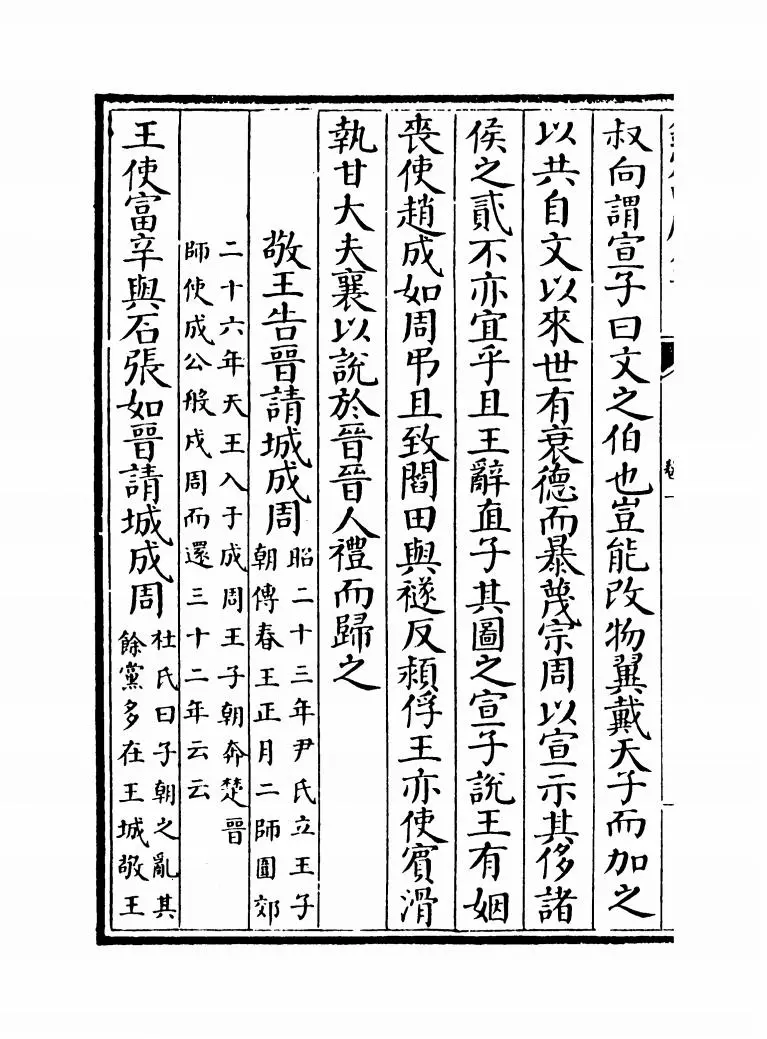 叔向謂宣子曰文之伯也豈能改物翼戴天子而加之
以共自文以來世有衰德而暴蔑宗周以宣示其侈諸
侯之貳不亦宜乎且王辭直子其圖之宣子說王有姻
喪使趙成如周弔且致閻田與襚反潁俘王亦使賓滑
執甘大夫襄以說於晉晉人禮而歸之
敬王告晉請城成周
昭二十三年尹氏立王子
朝傳春王正月二師圍郊
二十六年天王入于成周王子朝奔楚晉
師使成公般戍周而還三十二年云云
王使富辛與石張如晉請城成周
杜氏曰子朝之亂其
餘黨多在王城敬王